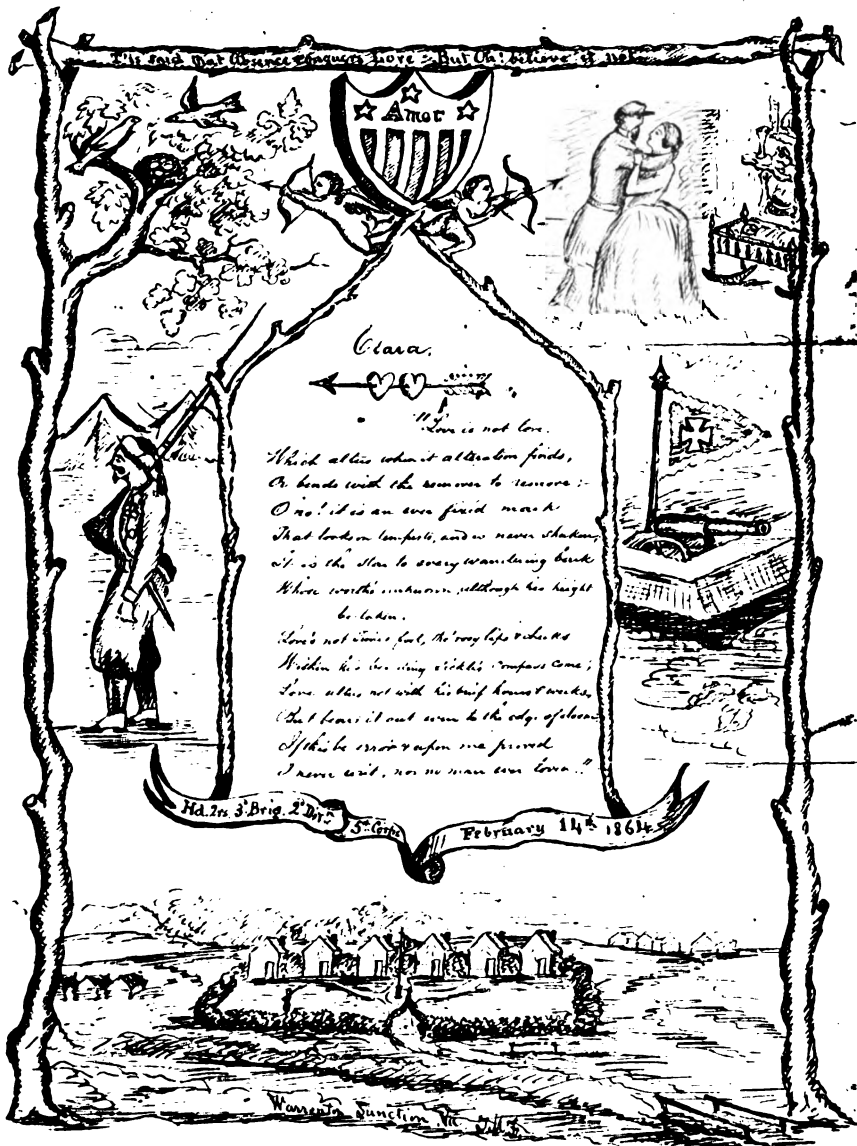 T'is said that Absence conquers Love - But Oh! believe it not.
Amor
Clara.
"Love is not love.
Which alters when it alteration finds,
Or bends with the remover to remove:-
O no! it is an ever fixed mark
That looks on tempests, and is never shaken;
it is the star to every wandering bark
Whose worth's unknown, although his height
be taken.
Love's not Time's fool, tho' rosy lips & cheeks
Within his bending sickle's compass come;
Love alters not with his brief hours & weeks,
But bears it out even to the edge of doom
If this be error & upon me proved
I never writ, nor no man ever loved.."
Hd. Qrs. 3d Brig. 2d Divn
5th Corps
February 14th 1864
Warrenton Junction Va